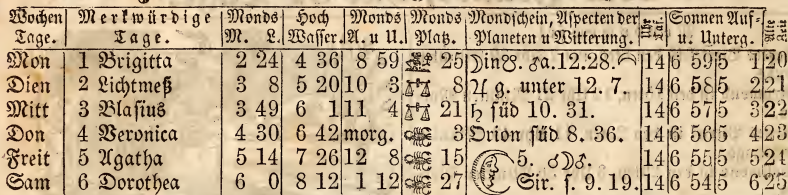 Wochen Tage. Merkwürdige Tage. Monds M. L. Hoch Wasser. Monds A. u U. Monds Platz. Mondschein, Aspecten der Planeten u Witterung. Uhr Sonnen Auf- u. Unterg. Alte
Mon 1 Brigitta 2 24 4 36 8 59 ♎ 25 ☽in☋. ♂a. 12.28. 14 6 59 5 1 20
Dien 2 Lichtmeß 3 8 5 20 10 3 ♎ 8 ♃ g. unter 12. 7. 14 6 58 5 2 21
Mitt 3 Blasius 3 49 6 1 11 4 ♎ 21 ♄ süd 10. 31. 14 6 57 5 3 22
Don 4 Veronica 4 30 6 42 morg. 3 Orion süd 8. 36. 14 6 56 5 4 23
Freit 5 Agatha 5 14 7 26 12 8 15 5. ☌☽♂. 14 6 55 5 5 24
Sam 6 Dorothea 6 0 8 12 1 12 27 Sir. s. 9. 19. 14 6 54 5 6 25